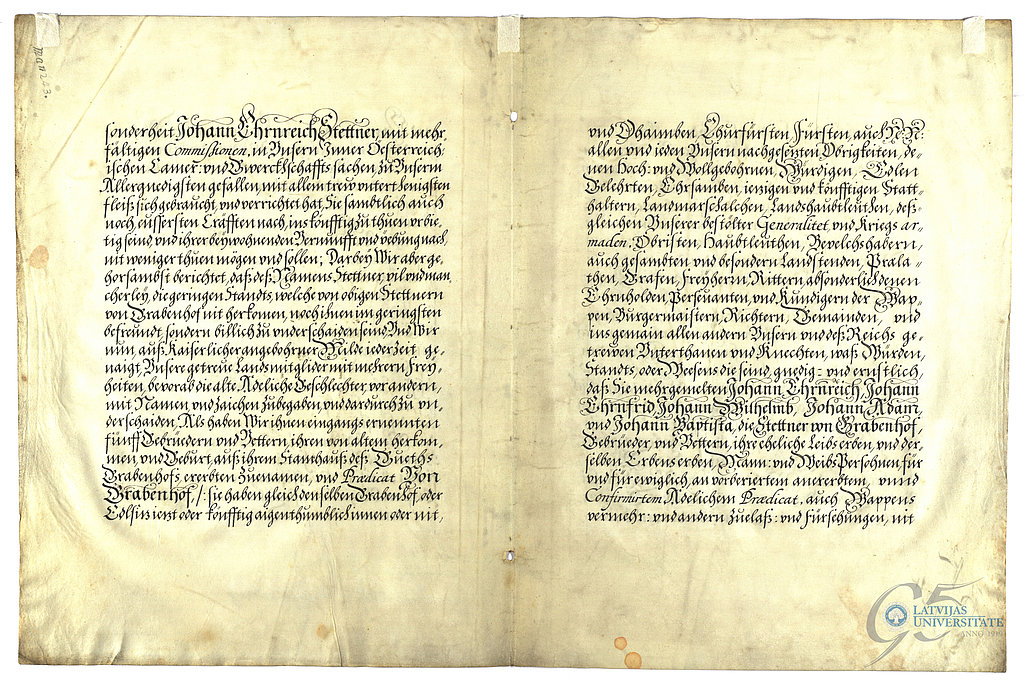 man 243.
sonderheit Johann Ehrnreich Stettner, mit mehr,
fältigen Commissionen, in Unsern Inner Oesterreich:
ischen Camer: und Bwerckschaffts sachen, zu Unserm
Allergnedigsten gefallen, mit allem treu untertenigsten
fleiß sich gebraucht, und verrichtet hat, Sie sambtlich auch
noch, eussersten Crafften nach, ins künfftig zu thuen urbie,
tig seind, und ihrer beywohnenden Vernunfft und yebung nach,
nit weniger thuen mögen und sollen; Darbey Wir aber ge,
horsambst berichtet, daß deß Namens Stettner, vil und man,
cherley, die geringen Standts, welche von obigen Stettnern
von Grabenhof nit herkomen, noch ihnen im geringsten
befreundt, sondern billich zu underschaiden seind, Und Wir
nun, auß Kaiserlicher angebohrner Milde iederzeit, ge,
naigt, Unsere getreue Landsmitglider mit mehrern Frey,
heiten, bevorab die alte Adeliche Geschlechter, vor andern,
mit Namen, und zaichen zubegaben, und dardurch zu un,
derschaiden, Als haben Wir ihnen eingangs ernenten
fünff Gebrüedern und Vettern, ihren von altem herkom,
men, und Geburt, auß ihrem Stamhauß deß Gueths
Grabenhofs, ererbten Zuenamen, und Prædicat Von
Grabenhof, /: sie haben gleich denselben Grabenhof, oder
Edlsiz iezt oder künfftig aigenthumblich innen oder nit,
und Dhaimben, Churfürsten, Fürsten, auch N: N:
allen und ieden Unsern nachgesezten Obrigkeiten, de=
nen Hoch: und Wollgebohrnen, Würdigen, Edlen
Gelehrten, Ehrsamben, ienzigen und könfftigen Statt=
haltern, Landmarschalchen, Landshaubtleuthen, deß=
gleichen Unserer bestölter Generalitet, und Kriegs ar=
maden, Obristen, Haubtleuthen, Bevelchshabern,
auch gesambten und besondern Landstenden, Præla=
then, Grafen, Freyherrn, Rittern, absonderlich denen
Ehrnholden, Persevanten, und Kündigern der Wap=
pen, Burgermaistern, Richtern, Gemainden, und
ins gemain allen andern Unsern und deß Reichs ge=
trewen Unterthanen und Knechten, waß Würden,
Standts, oder Weesens die seind, gnedig: und ernstlich,
daß Sie mehrgemelten Johann Ehrnreich, Johann
Ehrnfrid, Johann Wilhelmb, Johann Adam,
und Johann Baptista, die Stettner von Grabenhof,
Gebrüeder, und Vettern, ihre eheliche Leibs erben, und der,
selben Erbens erben, Mann: und Weibs Persohnen, für
und für ewiglich, an vorberiertem anererbtem, unnd
Confirmirtem Adelichem Prædicat, auch Wappens
vermehr: und andern Zuelaß: und Fürsehungen, nit
95
LATVIJAS
UNIVERSITĀTE
ANNO 1919